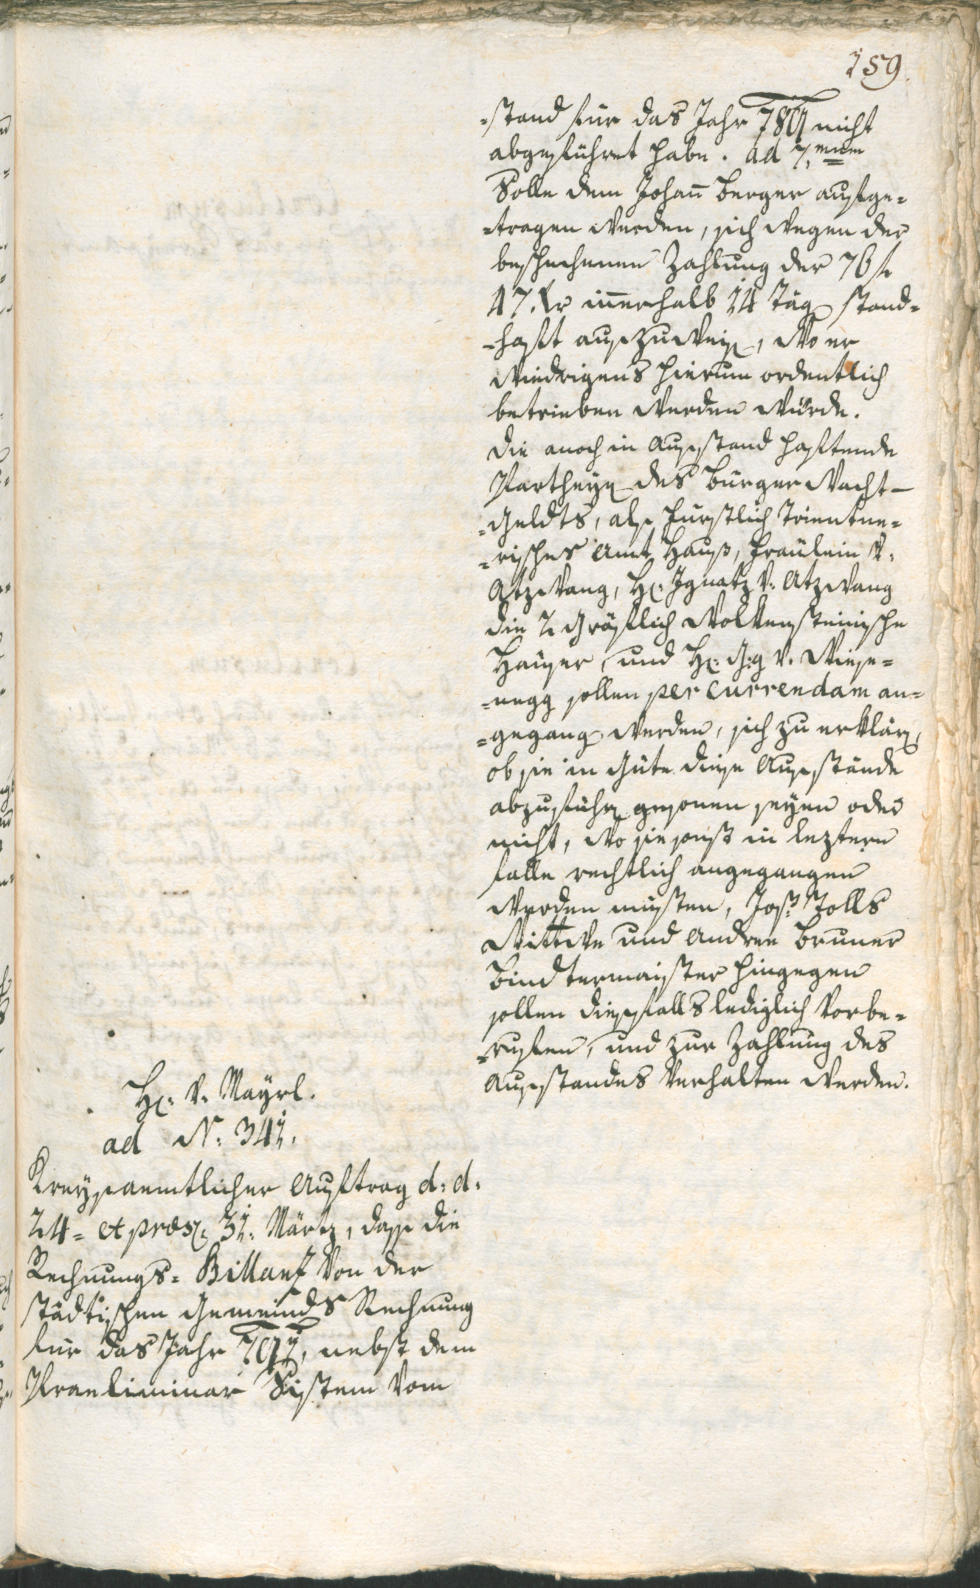 159.
-stand für das Jahr 789 nicht
abgeführet habe. ad 7.mum
Solle dem Johann Berger aufge-
-tragen werden, sich wegen der
beschehenen Zahlung der 76 f
47. Kr innerhalb 14 Täg stand-
-haft auszuweisen, wo er
wiedrigens hierum ordentlich
betrieben werden würde.
die anoch in Ausstand haftende
Partheyen des Burger Wacht-
-Geldts, als Fürstlich Trientne-
-risches Amt Hauß, Fräulein v.
Atzwang, H: Ignatz v. Atzwang
die 2 Gräflich Wolkensteinische
Häuser, und H: G:g v. Wiese-
-negg sollen per currendam an-
-gegangen werden, sich zu erklären,
ob sie in Güte diese Ausstände
abzuführen gesonen seyen oder
nicht, wo sie sonst in leztern
falle rechtlich angegangen
werden müsten, Jos: Tolls
Wittwe und Andree Bruner
Bindtermaister hingegen
sollen diesfalls lediglich vorbe-
-rufen, und zur Zahlung des
Ausstandes verhalten werden.
H: v. Mayrl.
ad N: 341.
Kreysamtlicher Auftrag d: d:
24= et præs: 31. Märtz, dass die
Rechnungs= Billanz von der
städtischen Gemeinds Rechnung
für das Jahr 791, nebst dem
Praeliminar Sistem vom